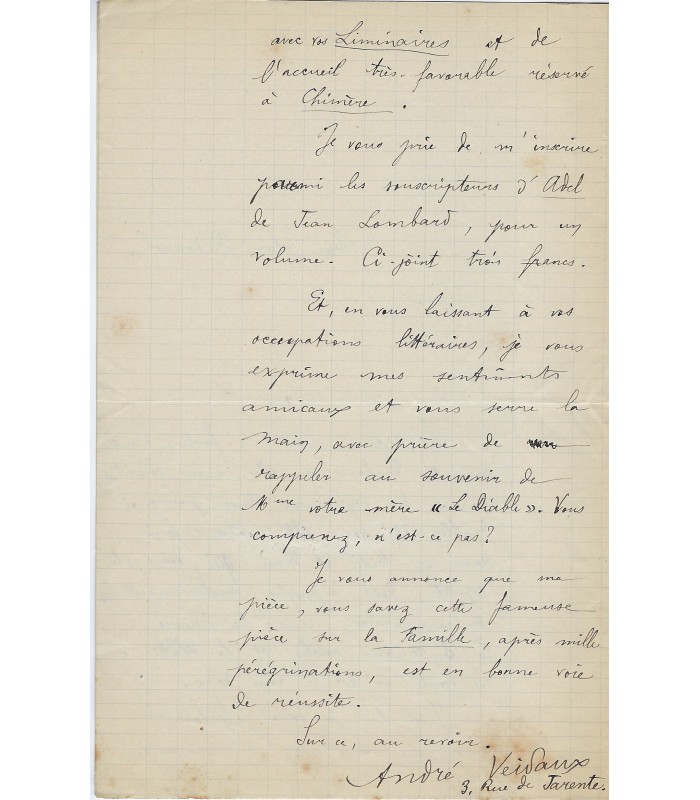 avec vos Liminaires et de
l'accueil très-favorable réservé
à Chimère.
Je vous prie de m'inscrire
parmi les souscripteurs d'Adel
de Jean Lombard, pour un
volume. Ci-joint trois francs.
Et, en vous laissant à vos
occupations littéraires, je vous
exprime mes sentiments
amicaux et vous serre la
main, avec prière de
rappeler au souvenir de
Mme votre mère « Le Diable ». Vous
comprenez, n'est-ce pas?
Je vous annonce que ma
pièce, vous savez cette fameuse
pièce sur la Famille, après mille
pérégrinations, est en bonne voie
de réussite.
Sur ce, au revoir.
André Veidaux
3, Rue de Tarente.